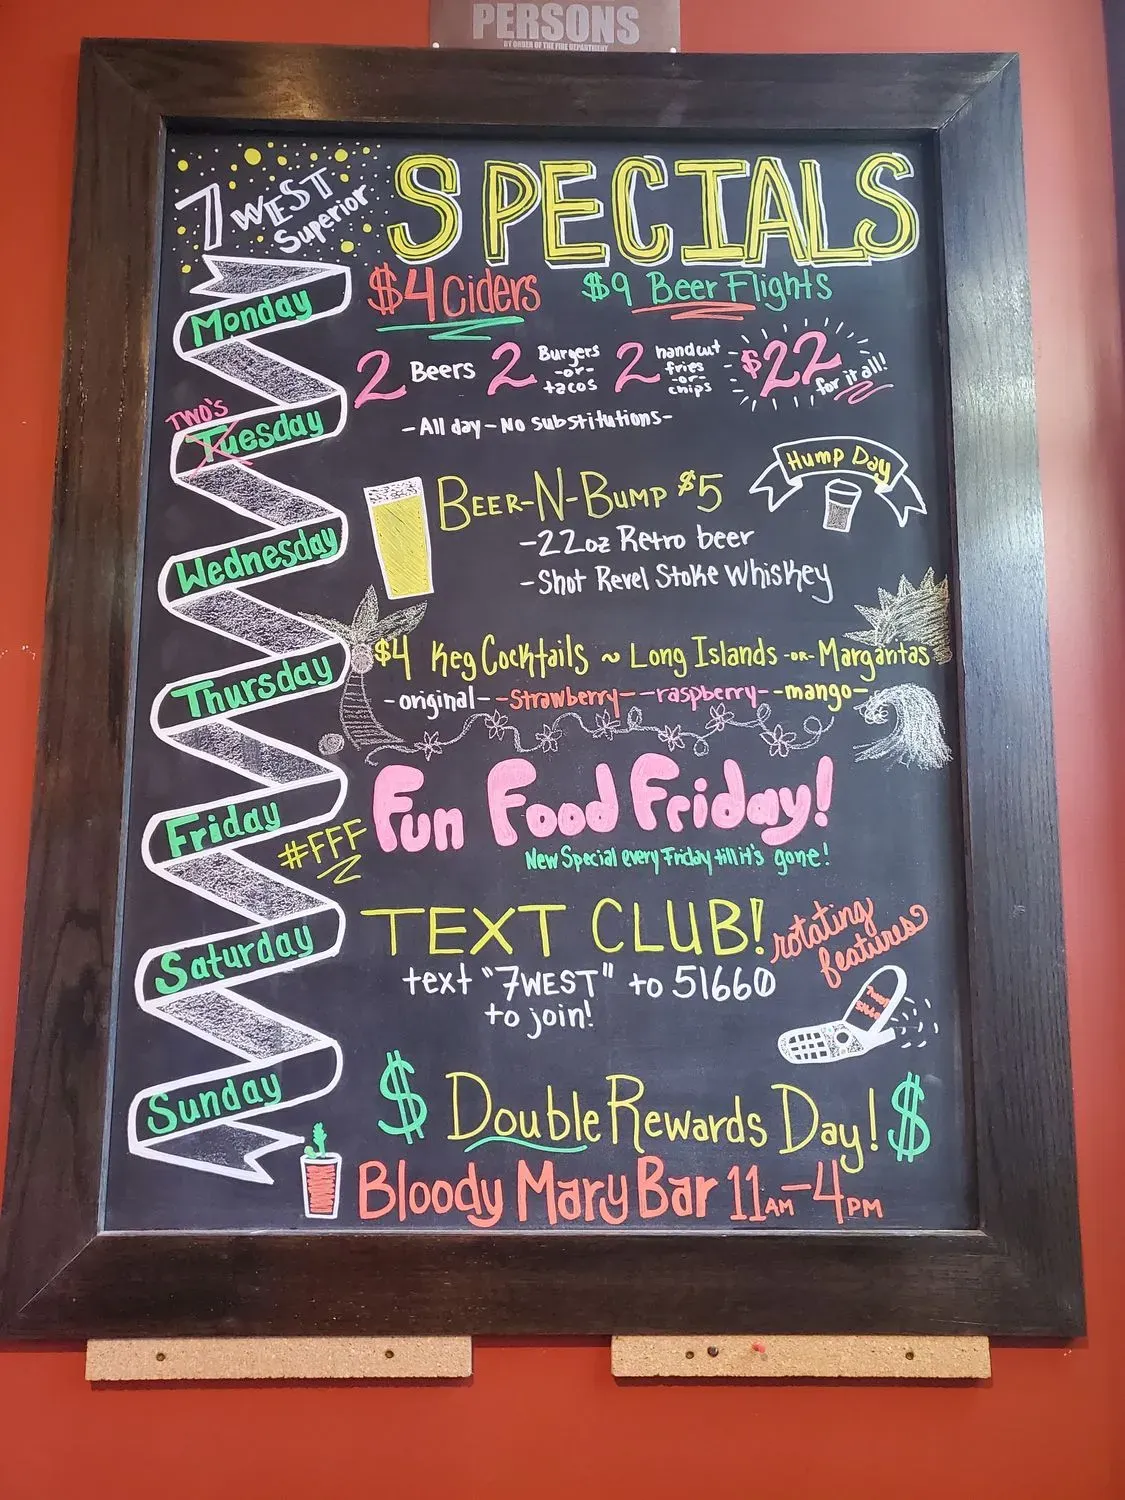 PERSONS
BY ORDER OF THE FIRE DEPARTMENT
7 WEST
Superior
SPECIALS
Monday
$4 Ciders
$9 Beer Flights
TWO'S
Tuesday
2 Beers 2 Burgers -or- tacos 2 handcut fries -or- chips $22 for it all!
- All day - No substitutions -
Wednesday
BEER-N-BUMP $5
Hump Day
-22oz Retro beer
-Shot Revel Stoke Whiskey
Thursday
$4 Keg Cocktails ~ Long Islands -OR- Margaritas
-original- -Strawberry- -raspberry- -mango-
Friday
#FFF
Fun Food Friday!
New Special every Friday till it's gone!
Saturday
TEXT CLUB!
rotating
features
text "7WEST" to 51660
to join!
Sunday
$ Double Rewards Day! $
Bloody Mary Bar 11AM-4PM